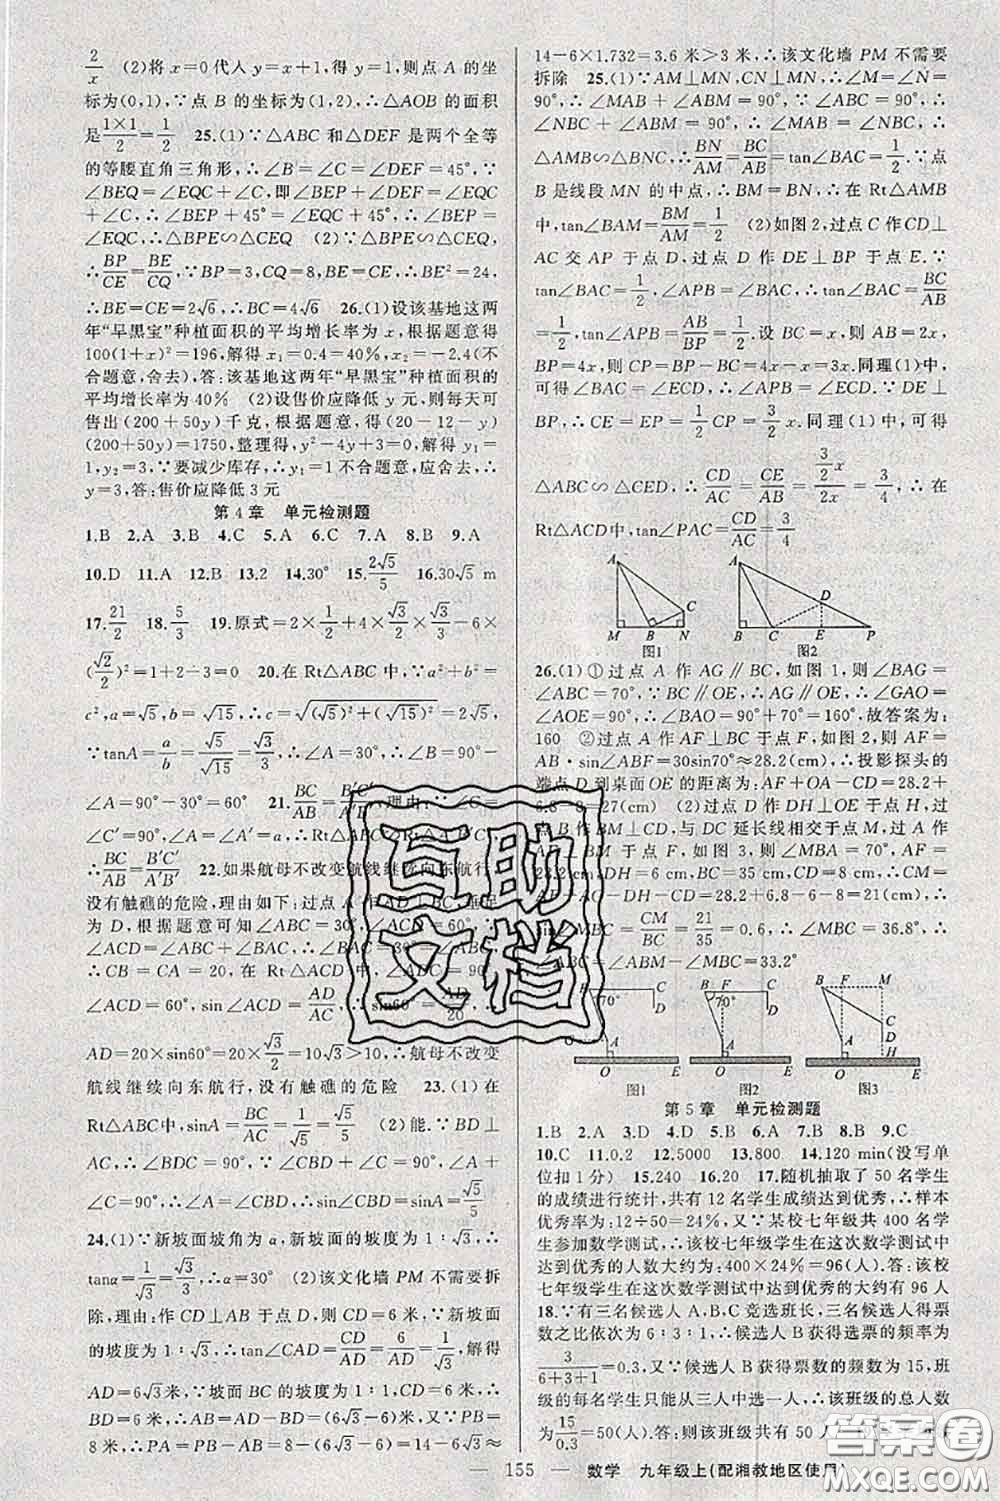 2/x　(2)将 x=0代人 y=x+1,得 y=1,则点 A 的坐
标为(0,1),∵点 B 的坐标为(1,2),∴△AOB 的面积
是 1×1/2 = 1/2　25.(1)∵△ABC 和△DEF 是两个全等
的等腰直角三角形,∴∠B=∠C=∠DEF=45°,∵
∠BEQ=∠EQC+∠C,即∠BEP+∠DEF=∠EQC
+∠C,∴∠BEP+45°=∠EQC+45°,∴∠BEP=∠
EQC,∴△BPE∽△CEQ　(2)∵△BPE∽△CEQ,
∴BP/CE=BE/CQ,∵BP=3,CQ=8,BE=CE,∴BE²=24,
∴BE=CE=2√6,∴BC=4√6　26.(1)设该基地这两
年“早黑宝”种植面积的平均增长率为 x,根据题意得
100(1+x)²=196,解得 x₁=0.4=40%,x₂=-2.4(不
合题意,舍去),答:该基地这两年“早黑宝”种植面积的
平均增长率为40%　(2)设售价应降低 y 元,则每天可
售出(200+50y)千克,根据题意,得(20-12-y)
(200+50y)=1750,整理得,y²-4y+3=0,解得 y₁=
1,y₂=3,∵要减少库存,∴y₁=1不合题意,应舍去,∴
y=3,答:售价应降低 3 元
第 4 章　单元检测题
1.B　2.A　3.B　4.C　5.A　6.C　7.A　8.B　9.A
10.D　11.A　12.B　13.2　14.30°　15.2√5/5　16.30√5 m
17.21/2　18.5/3　19.原式=2×1/2+4×√3/2×√3/3-6×
(√2/2)²=1+2-3=0　20.在 Rt△ABC 中,∵a²+b²=
c²,a=√5,b=√15,∴c=√((√5)²+(√15)²)=2√5,
∵tanA=a/b=√5/√15=√3/3,∴∠A=30°,∴∠B=90°-
∠A=90°-30°=60°　21.BC/AB=B'C'/A'B',理由:∵∠C=
∠C'=90°,∠A=∠A'=α,∴Rt△ABC
∴BC/AB=B'C'/A'B'　22.如果航母不改变航线继续向东航行,
没有触礁的危险,理由如下:过点
为 D,根据题意可知∠ABC=30°,∠ACD=60°,∵
∠ACD=∠ABC+∠BAC,∴∠BAC=30°=∠ABC,
∴CB=CA=20,在 Rt△ACD 中,∠ADC=90°,
∠ACD=60°,sin∠ACD=AD/AC,∴sin60°=AD/20,∴
AD=20×sin60°=20×√3/2=10√3>10,∴航母不改变
航线继续向东航行,没有触礁的危险　23.(1)在
Rt△ABC 中,sinA=BC/AC=1/√5=√5/5　(2)能.∵BD⊥
AC,∴∠BDC=90°,∴∠CBD+∠C=90°,∵∠A+
∠C=90°,∴∠A=∠CBD,∴sin∠CBD=sinA=√5/5
24.(1)∵新坡面坡角为 α,新坡面的坡度为 1:√3,∴
tanα=1/√3=√3/3,∴α=30°　(2)该文化墙 PM 不需要拆
除,理由:作 CD⊥AB 于点 D,则 CD=6 米,∵新坡面
的坡度为 1:√3,∴tan∠CAD=CD/AD=6/AD=1/√3,解得,
AD=6√3米,∵坡面 BC 的坡度为 1:1,CD=6 米,∴
BD=6 米,∴AB=AD-BD=(6√3-6)米,又∵PB=
8 米,∴PA=PB-AB=8-(6√3-6)=14-6√3≈
14-6×1.732=3.6 米>3 米,∴该文化墙 PM 不需要
拆除　25.(1)∵AM⊥MN,CN⊥MN,∴∠M=∠N=
90°,∴∠MAB+∠ABM=90°,∵∠ABC=90°,∴
∠NBC+∠ABM=90°,∴∠MAB=∠NBC,∴
△AMB∽△BNC,∴BN/AM=BC/AB=tan∠BAC=1/2,∵点
B 是线段 MN 的中点,∴BM=BN,∴在 Rt△AMB
中,tan∠BAM=BM/AM=1/2　(2)如图2,过点 C 作CD⊥
AC 交 AP 于点 D,过点 D 作 DE⊥PB 于点 E.∵
tan∠BAC=1/2,∴DC/AC=tan∠BAC=1/2,tan∠BAC=BC/AB
=1/2,tan∠APB=AB/BP=1/2.设 BC=x,则 AB=2x,
BP=4x,则 CP=BP-BC=4x-x=3x.同理(1)中,
可得∠BAC=∠ECD,∴∠APB=∠ECD.∵DE⊥
BP,∴CE=EP=1/2 CP=3/2 x.同理(1)中,可得
△ABC∽△CED,∴CD/AC=CE/AB=(3/2 x)/2x=3/4,∴在
Rt△ACD 中,tan∠PAC=CD/AC=3/4
A
M B N
C
图1
A
D
B C E P
图2
26.(1)①过点 A 作 AG∥BC,如图 1,则∠BAG=
∠ABC=70°,∵BC∥OE,∴AG∥OE,∴∠GAO=
∠AOE=90°,∴∠BAO=90°+70°=160°,故答案为:
160　②过点 A 作 AF⊥BC 于点 F,如图 2,则 AF=
AB·sin∠ABC=30sin70°≈28.2(cm),∴投影探头的
端点 D 到桌面 OE 的距离为:AF+OA-CD=28.2+
6.8-8=27(cm)　(2)过点 D 作 DH⊥OE 于点 H,过
点 B 与 DC 延长线相交于点 M,过点 A
作 如图 3,则∠MBA=70°,AF=
28.2 cm,DH=6 cm,BC=30 cm,CD=8 cm,∴CM=
AF+AO-DH-CD=28.2+6.8-6-8=21(cm),∴
sin∠MBC=CM/BC=21/35=0.6,∴∠MBC=36.8°,∴
∠ABC=∠ABM-∠MBC=33.2°
70°
C
D
A
O E
图1
B F C
70° D
A
O E
图2
B F M
C
D
A
O H E
图3
第 5 章　单元检测题
1.B　2.A　3.D　4.D　5.B　6.A　7.B　8.B　9.C
10.C　11.0.2　12.5000　13.800　14.120 min(没写单
位扣 1 分)　15.240　16.20　17.随机抽取了 50 名学生
的成绩进行统计,共有 12 名学生成绩达到优秀,∴样本
优秀率为:12÷50=24%,又∵某校七年级共 400 名学
生参加数学测试,∴该校七年级学生在这次数学测试中
达到优秀的人数大约为:400×24%=96(人).答:该校
七年级学生在这次数学测试中达到优秀的大约有 96 人
18.∵有三名候选人 A、B、C 竞选班长,三名候选人得票
数之比依次为 6:3:1,∴候选人 B 获得票的频率为
3/(6+3+1)=0.3,又∵候选人 B 获得票数的票为 15,班
级的每名学生只能从三人中选一人,∴该班级的总人数
为15/0.3=50(人).答:则该班级共有 50 人
— 155 —　数学　九年级上(配湘教地区使用)
互助
文档
答案圈
MXQE.COM